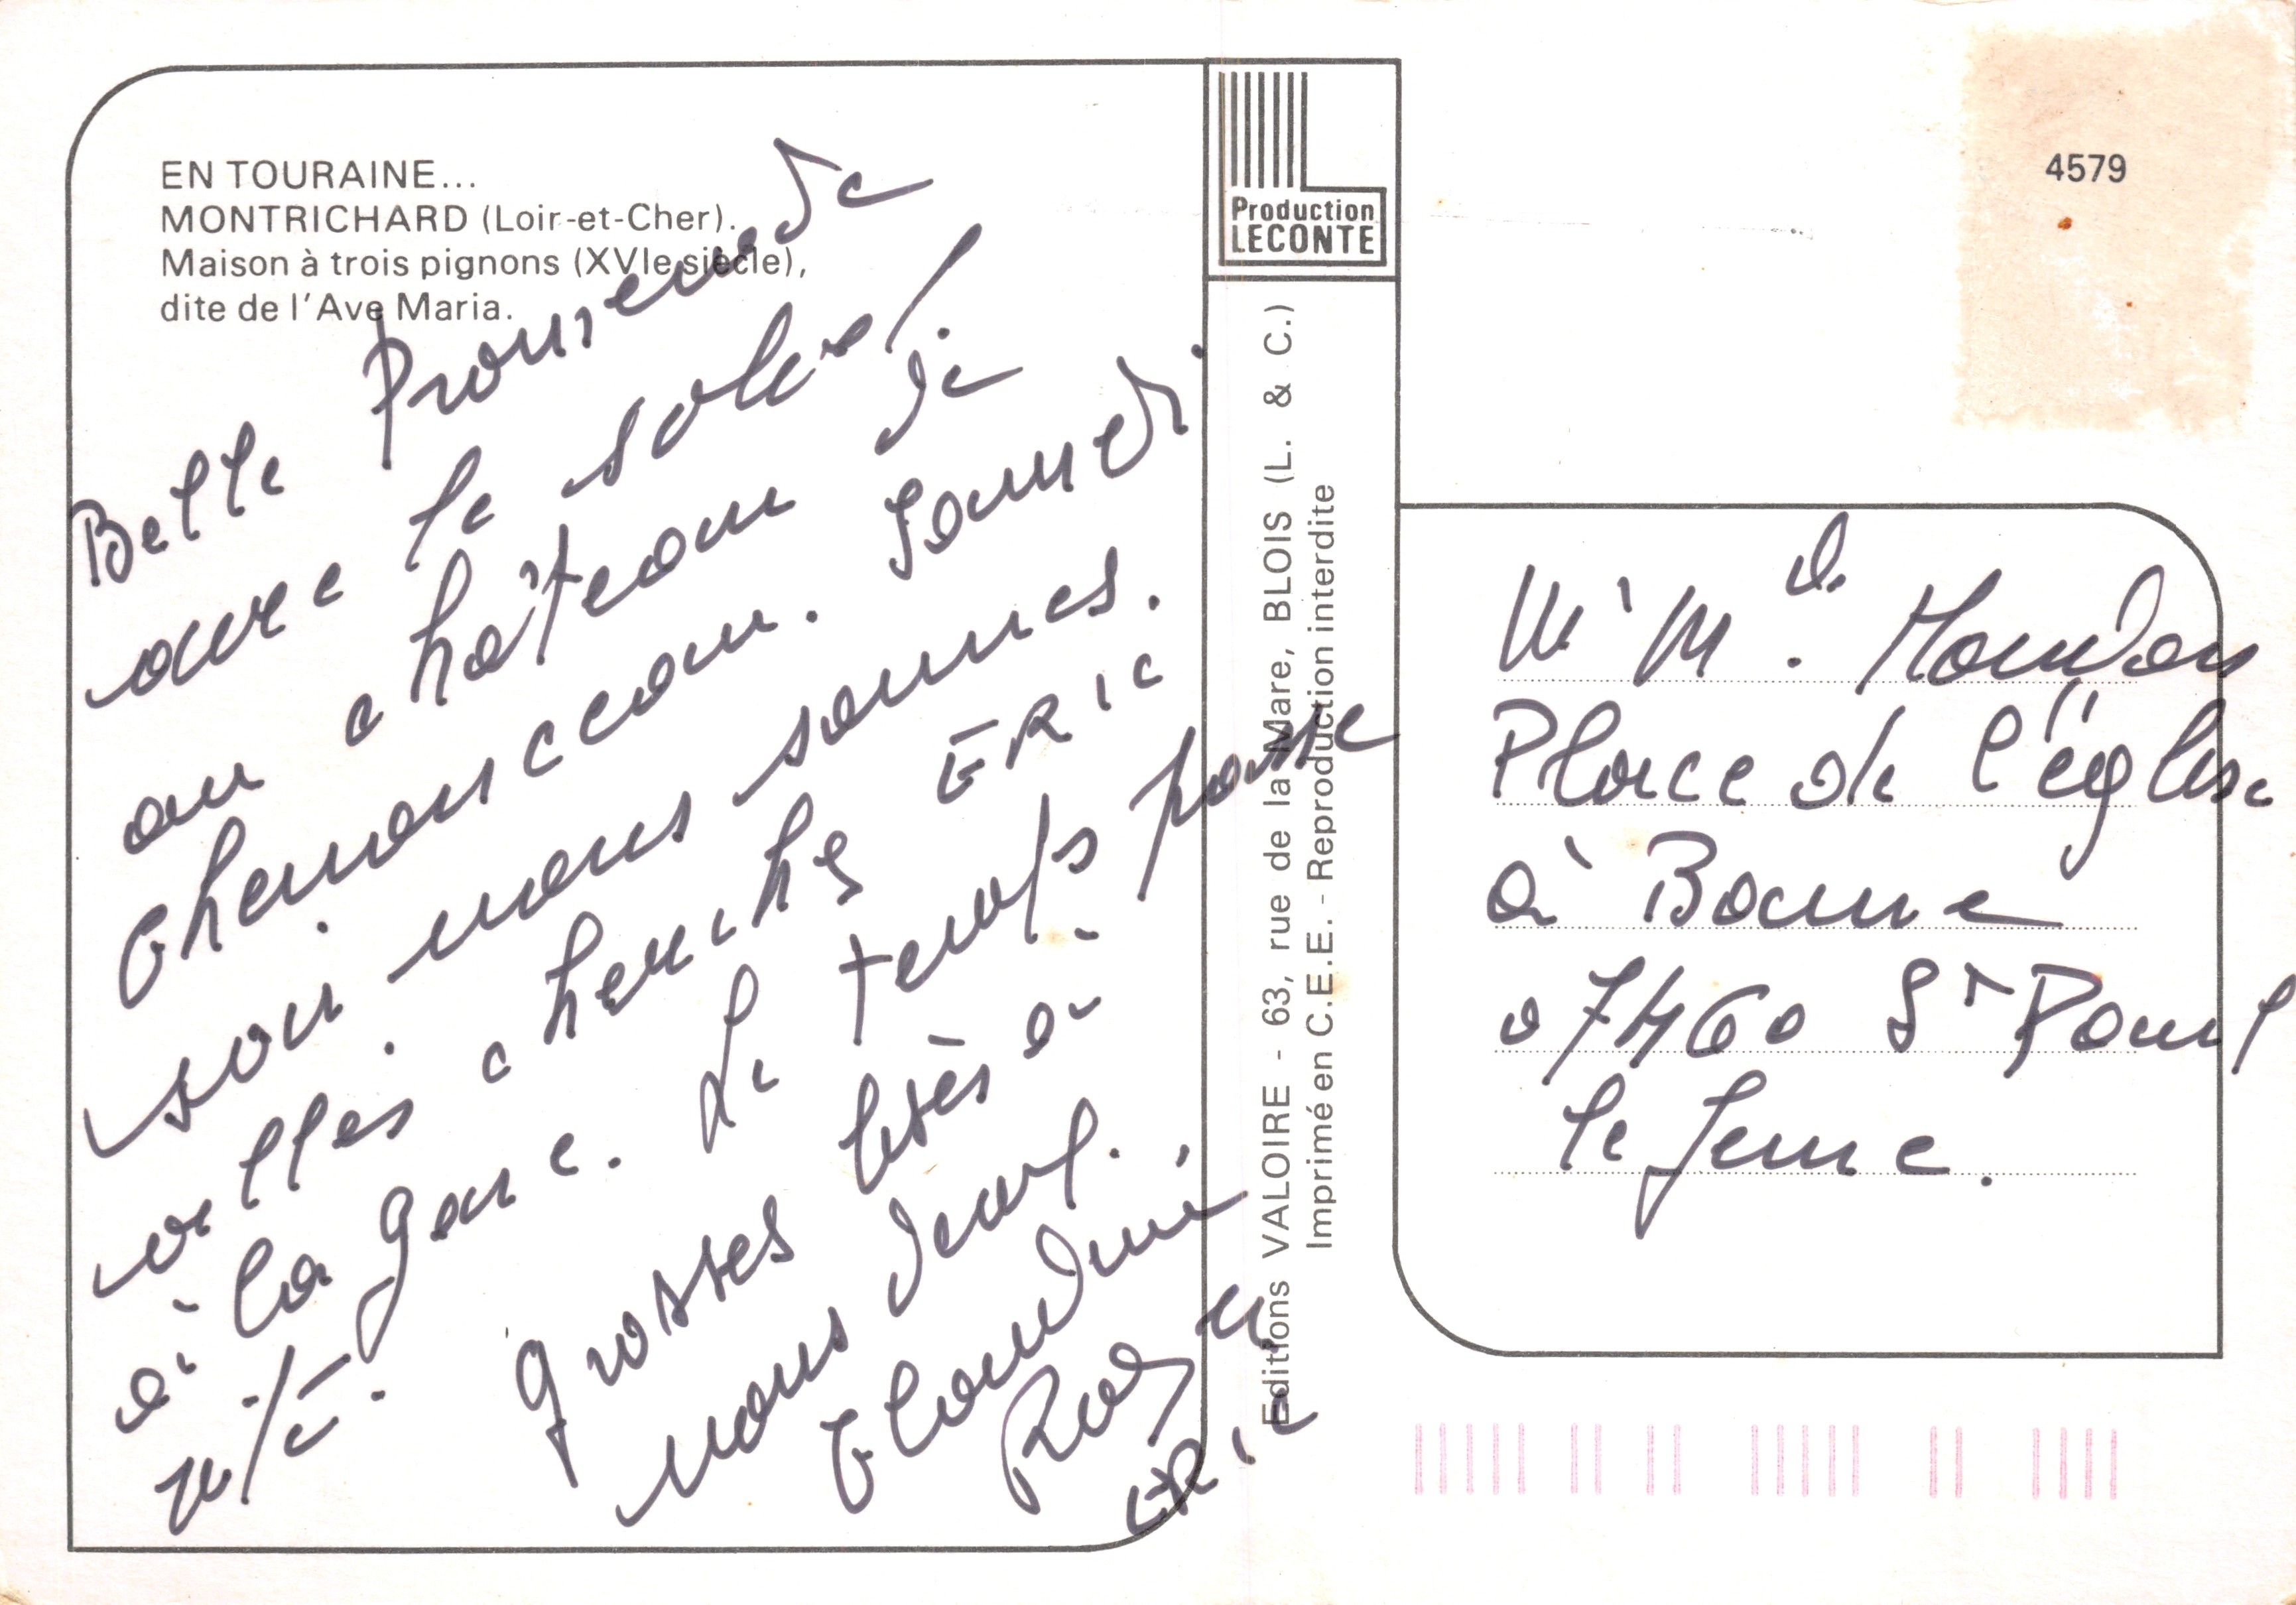 EN TOURAINE...
MONTRICHARD (Loir-et-Cher).
Maison à trois pignons (XVIe siècle),
dite de l'Ave Maria.
Belle Promenade
avec le soleil.
au château de
Chenonceau. Samedi
soir nous sommes.
allés cherchés ERIC
à la gare. Le temps passe
vite. Grosses bises à
vous deux.
Claudine
ERIC
Production
LECONTE
Editions VALOIRE - 63, rue de la Mare, BLOIS (L. & C.)
Imprimé en C.E.E. - Reproduction interdite
4579
Place de l'église
à Banne
07460 St Paul
le Jeune.